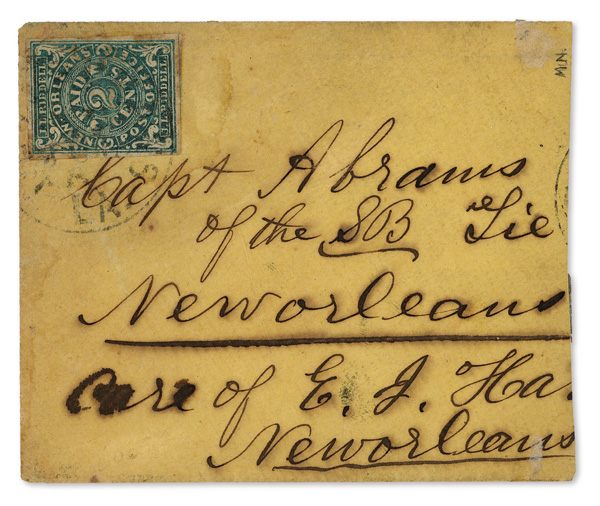 J.L. RIDDELL
NEW ORLEANS
POST OFFICE
J.L. RIDDELL
PAID
2
CTS
LA
M.N.
Capt Abrams
of the SB Tie
Neworleans
Care of E. J. Ha
Neworleans